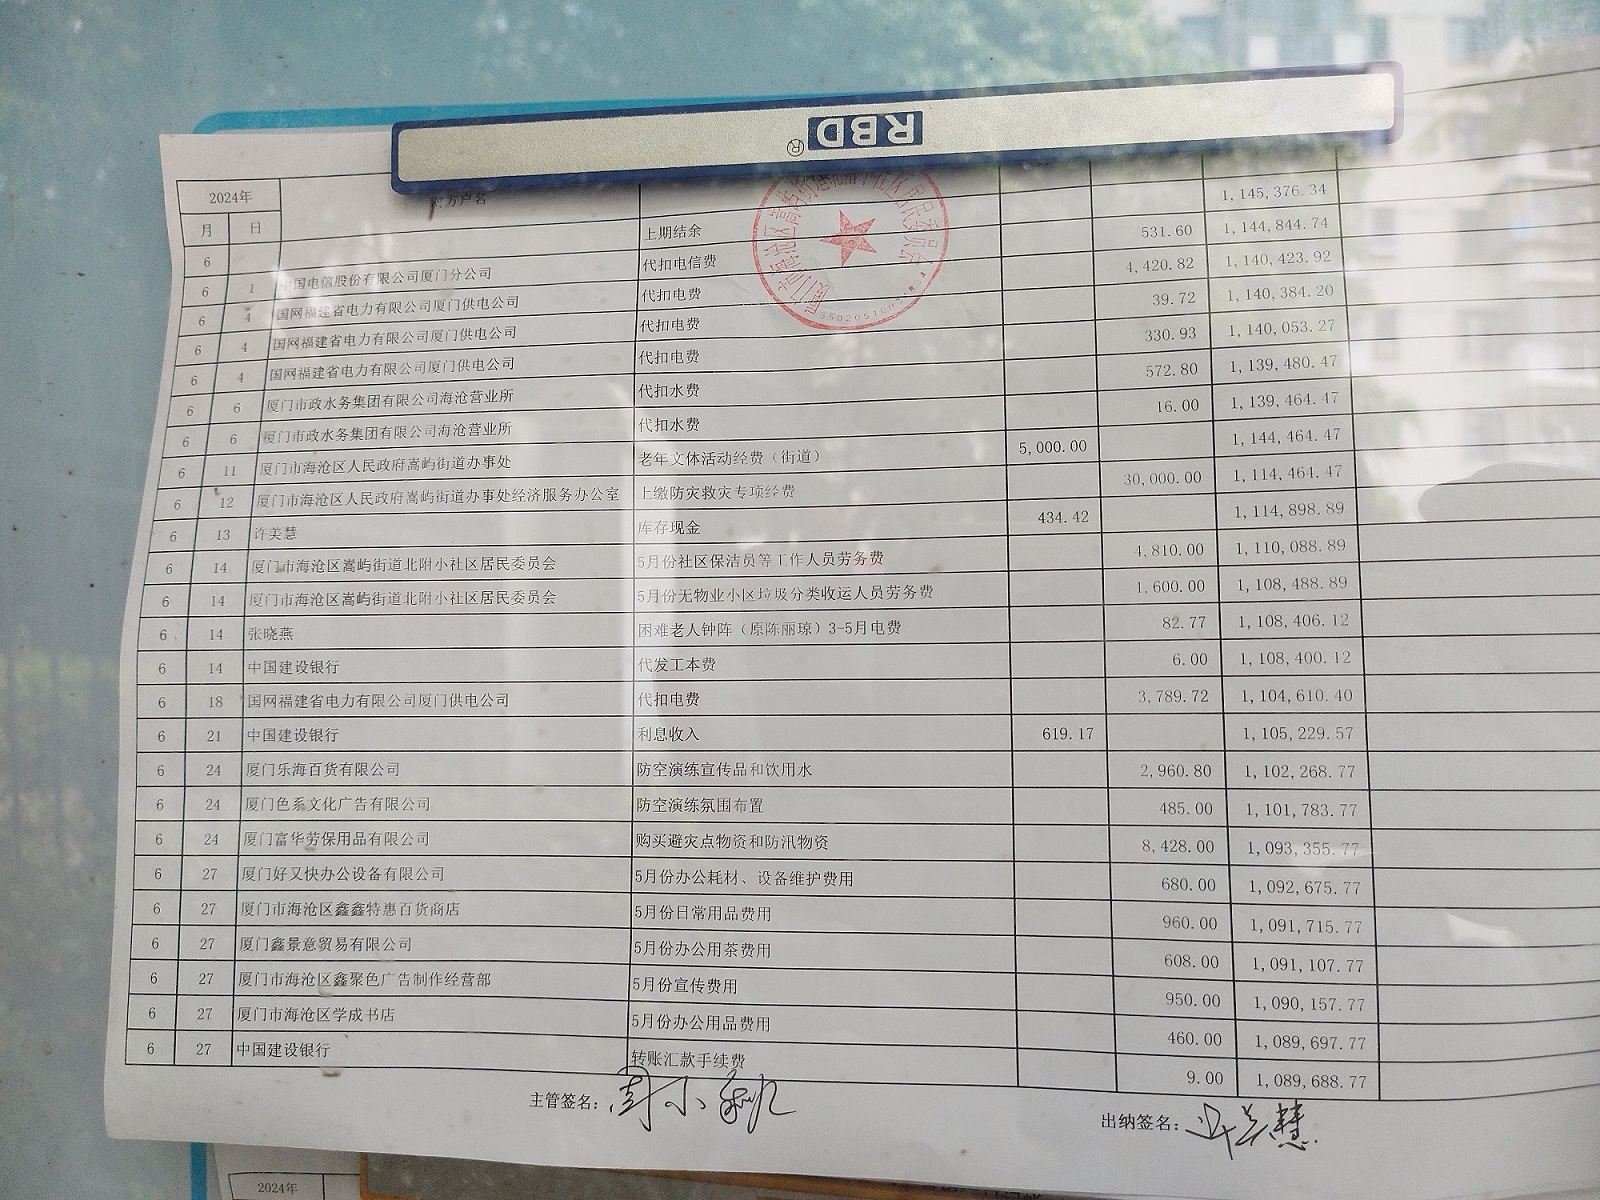 RBD®
2024年 对方户名
月 日 1,145,376.34
6 上期结余 531.60 1,144,844.74
6 1 中国电信股份有限公司厦门分公司 代扣电信费 4,420.82 1,140,423.92
6 4 国网福建省电力有限公司厦门供电公司 代扣电费 39.72 1,140,384.20
6 4 国网福建省电力有限公司厦门供电公司 代扣电费 330.93 1,140,053.27
6 4 国网福建省电力有限公司厦门供电公司 代扣电费 572.80 1,139,480.47
6 6 厦门市政水务集团有限公司海沧营业所 代扣水费 16.00 1,139,464.47
6 6 厦门市政水务集团有限公司海沧营业所 代扣水费 5,000.00 1,144,464.47
6 11 厦门市海沧区人民政府嵩屿街道办事处 老年文体活动经费（街道） 30,000.00 1,114,464.47
6 12 厦门市海沧区人民政府嵩屿街道办事处经济服务办公室 上缴防灾救灾专项经费 434.42 1,114,898.89
6 13 许美慧 库存现金 4,810.00 1,110,088.89
6 14 厦门市海沧区嵩屿街道北附小社区居民委员会 5月份社区保洁员等工作人员劳务费 1,600.00 1,108,488.89
6 14 厦门市海沧区嵩屿街道北附小社区居民委员会 5月份无物业小区垃圾分类收运人员劳务费 82.77 1,108,406.12
6 14 张晓燕 困难老人钟阵（原陈丽琼）3-5月电费 6.00 1,108,400.12
6 14 中国建设银行 代发工本费 3,789.72 1,104,610.40
6 18 国网福建省电力有限公司厦门供电公司 代扣电费
6 21 中国建设银行 利息收入 619.17 1,105,229.57
6 24 厦门乐海百货有限公司 防空演练宣传品和饮用水 2,960.80 1,102,268.77
6 24 厦门色系文化广告有限公司 防空演练氛围布置 485.00 1,101,783.77
6 24 厦门富华劳保用品有限公司 购买避灾点物资和防汛物资 8,428.00 1,093,355.77
6 27 厦门好又快办公设备有限公司 5月份办公耗材、设备维护费用 680.00 1,092,675.77
6 27 厦门市海沧区鑫鑫特惠百货商店 5月份日常用品费用 960.00 1,091,715.77
6 27 厦门鑫景意贸易有限公司 5月份办公用茶费用 608.00 1,091,107.77
6 27 厦门市海沧区鑫聚色广告制作经营部 5月份宣传费用 950.00 1,090,157.77
6 27 厦门市海沧区学成书店 5月份办公用品费用 460.00 1,089,697.77
6 27 中国建设银行 转账汇款手续费 9.00 1,089,688.77
主管签名：周小
出纳签名：许美慧
2024年